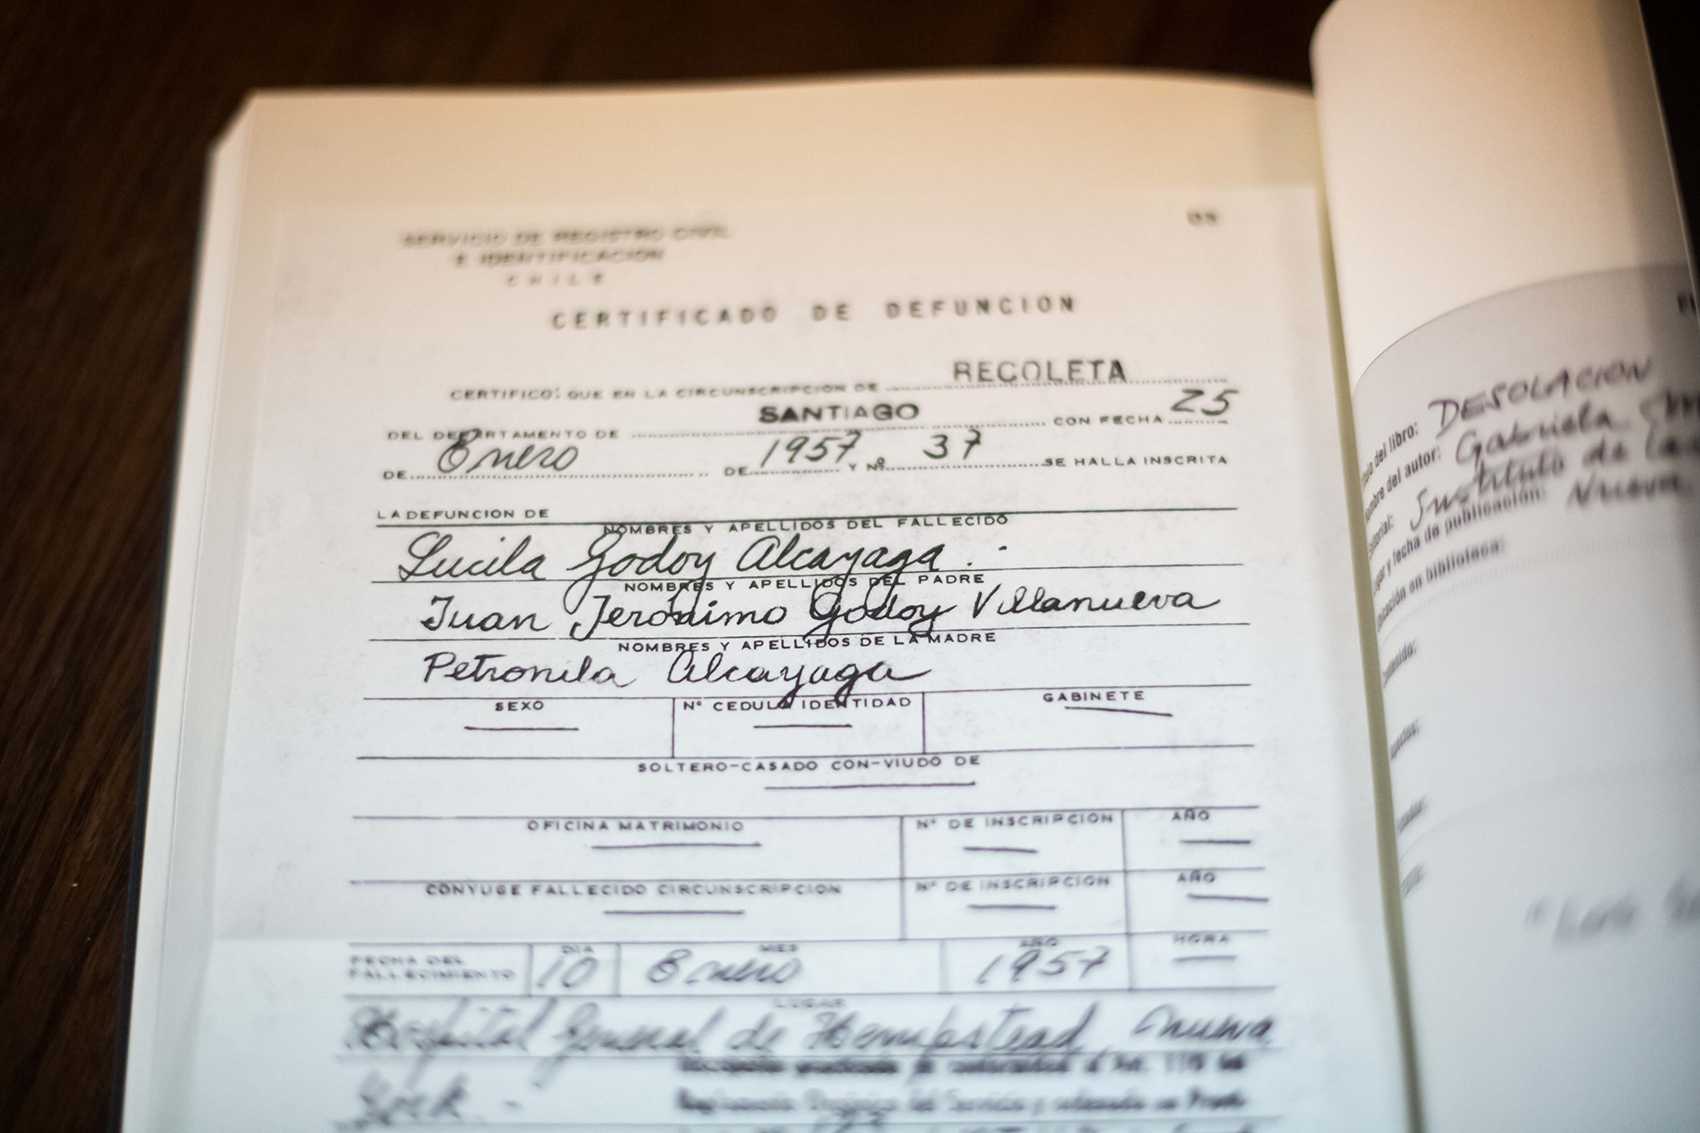 SERVICIO DE REGISTRO CIVIL
E IDENTIFICACION
CHILE
CERTIFICADO DE DEFUNCION
RECOLETA
CERTIFICO: QUE EN LA CIRCUNSCRIPCION DE
SANTIAGO
DEL DEPARTAMENTO DE CON FECHA 25
DE Enero DE 1957 Y Nº 37 SE HALLA INSCRITA
LA DEFUNCION DE
NOMBRES Y APELLIDOS DEL FALLECIDO
Lucila Godoy Alcayaga.-
NOMBRES Y APELLIDOS DEL PADRE
Juan Jerónimo Godoy Villanueva
NOMBRES Y APELLIDOS DE LA MADRE
Petronila Alcayaga
SEXO Nº CEDULA IDENTIDAD GABINETE
SOLTERO-CASADO CON-VIUDO DE
OFICINA MATRIMONIO Nº DE INSCRIPCION AÑO
CONYUGE FALLECIDO CIRCUNSCRIPCION Nº DE INSCRIPCION AÑO
DIA MES AÑO HORA
FECHA DEL
FALLECIMIENTO 10 Enero 1957
LUGAR
Hospital General de Hempstead, Nueva
York.-
del libro: DESOLACION
del autor: Gabriela
Instituto de las
y fecha de publicación: Nueva
en biblioteca: